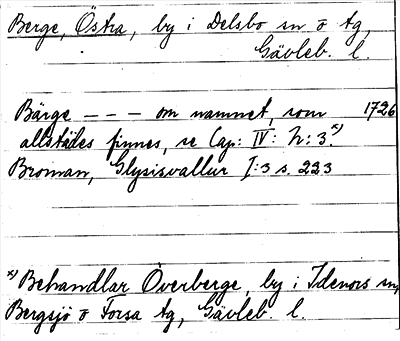 Berge, Östra, by i Delsbo sn o tg,
Gävleb. l.
Bärge - - - om namnet, som 1726
allstädes finnes, se Cap: IV: N: 3.x)
Broman, Glysisvallur I:3 s. 223
x) Behandlar Överberge, by i Idenors sn,
Bergsjö o Forsa tg, Gävleb. l.